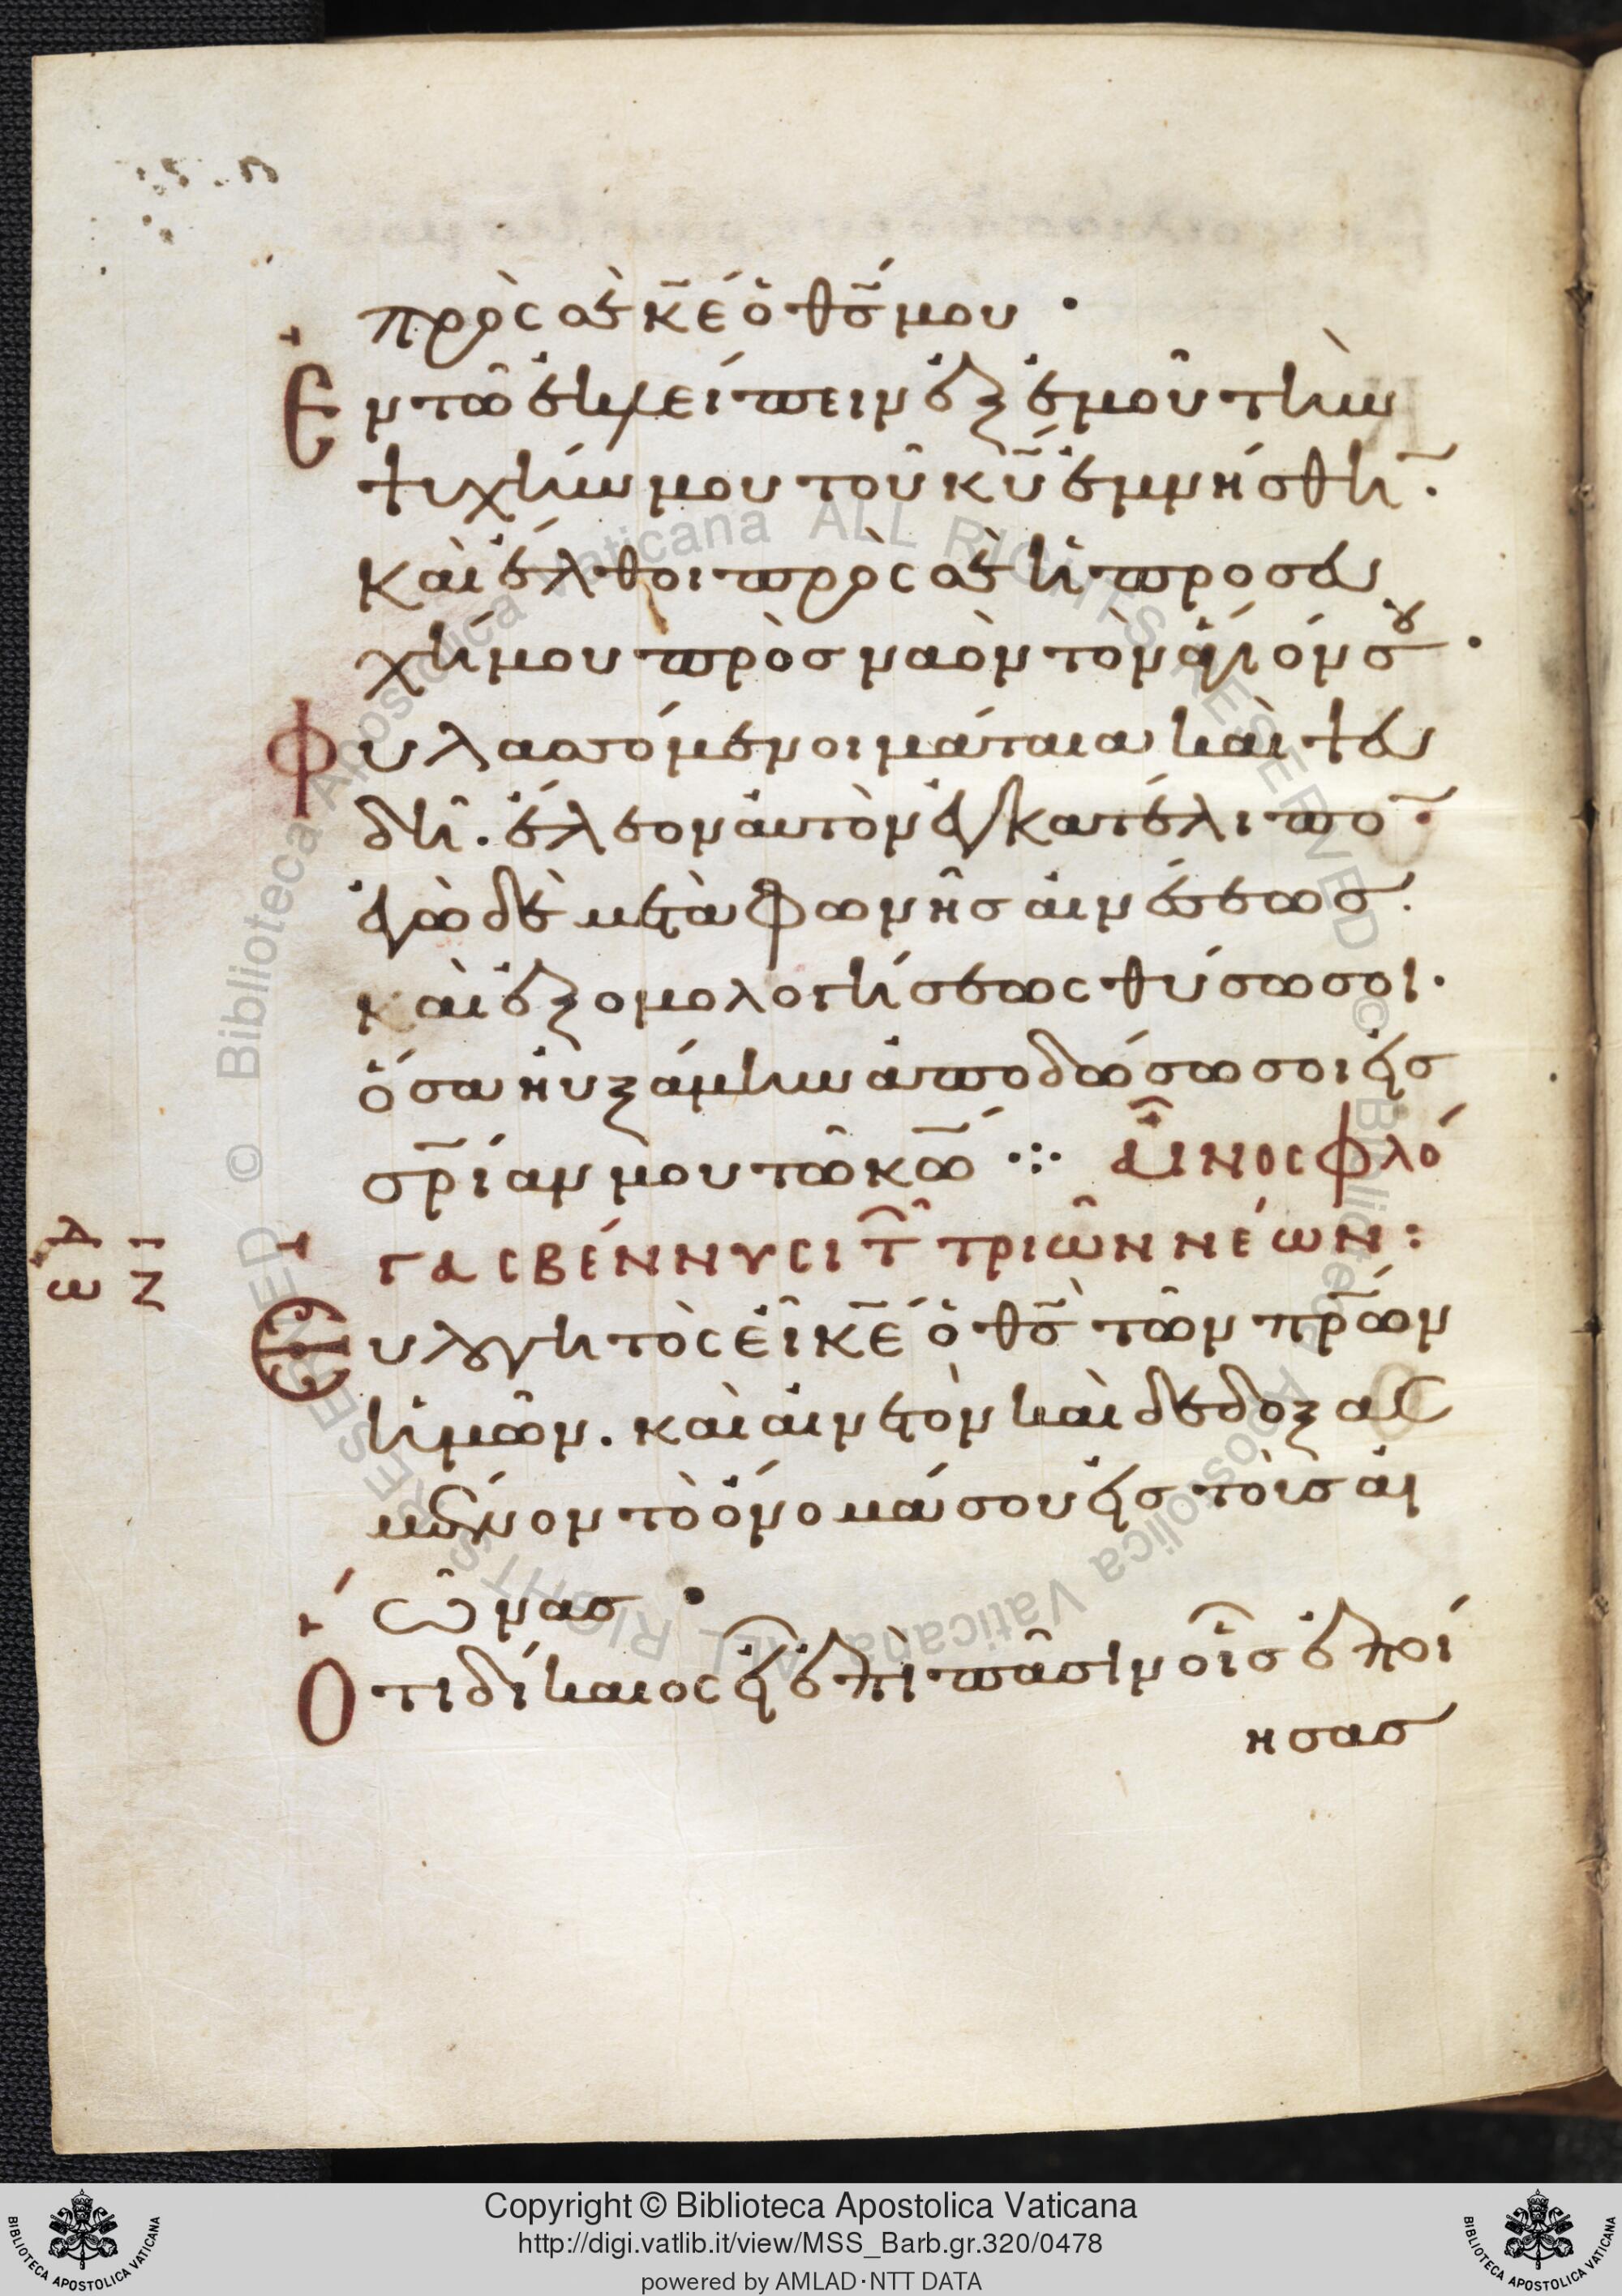 πρὸς σὲ κ̅ε̅ ὁ θ̅ς̅ μου ·
Ἐν τῶ ἐκλείπειν ἐξ ἐμοῦ τὴν
ψυχήν μου τοῦ κ̅υ̅ ἐμνήσθην·
Καὶ ἔλθοι πρὸς σὲ ἡ προσευ
χή μου πρὸς ναὸν τὸν ἅγιόν σου ·
Φυλασσόμενοι μάταια καὶ ψευ
δῆ. ἔλεον αὐτὸν ἐγκατέλιπον·
ἐγὼ δὲ μετὰ φωνῆς αἰνέσεως.
καὶ ἐξομολογήσεως θύσω σοι·
ὅσα ηυξάμην ἀποδώσω σοι εἰς
σ̅ρ̅ίαν μου τῶ κ̅ω̅ ·:· ΑἾΝΟΣ ΦΛΌ
ΓΑ ΣΒΈΝΝΥΣΙ Τ̑ ΤΡΙΩ͂Ν ΝΈΩΝ:
ω̅δ̅ ζ̅
Εὐλογητὸς εἶ κ̅ε̅ ὁ θ̅ς̅ τῶν π̅ρ̅ων
ἡμῶν. καὶ αἰνετὸν καὶ δεδοξασ
μένον τὸ ὄνομά σου εἰς τοὺς αἰ
ῶνας ·
Ὅτι δίκαιος εἶ ἐπὶ πᾶσιν οἷς ἐποί
ησας
Copyright © Biblioteca Apostolica Vaticana
http://digi.vatlib.it/view/MSS_Barb.gr.320/0478
powered by AMLAD·NTT DATA
BIBLIOTECA APOSTOLICA VATICANA
BIBLIOTECA APOSTOLICA VATICANA
© Biblioteca Apostolica Vaticana ALL RIGHTS RESERVED
© Biblioteca Apostolica Vaticana ALL RIGHTS RESERVED